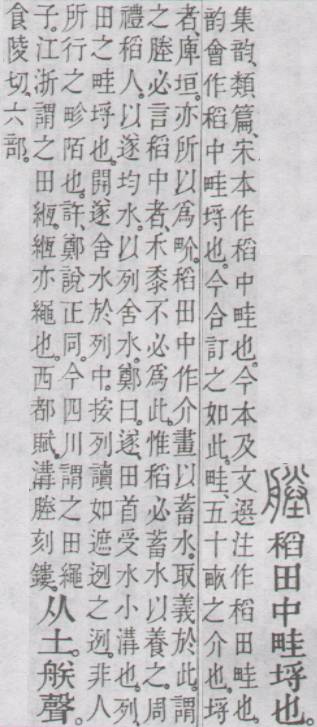 塍稻田中畦埒也。
集韵、類篇、宋本作稻中畦也。今本及文選注作稻田畦也。
韵會作稻中畦埒也。今合訂之如此。畦、五十畝之介也。埒
者、庳垣。亦所以爲畍。稻田中作介畫以蓄水。取義於此。謂
之塍必言稻中者、禾黍不必爲此。惟稻必蓄水以養之。周
禮稻人。以遂均水。以列舍水。鄭曰。遂、田首受水小溝也。列、
田之畦埒也。開遂舍水於列中。按列讀如遮迾之迾。非人
所行之畛陌也。許、鄭說正同。今四川謂之田繩
子。江浙謂之田緪。緪亦繩也。西都賦。溝塍刻鏤。从土。朕聲。
食陵切。六部。